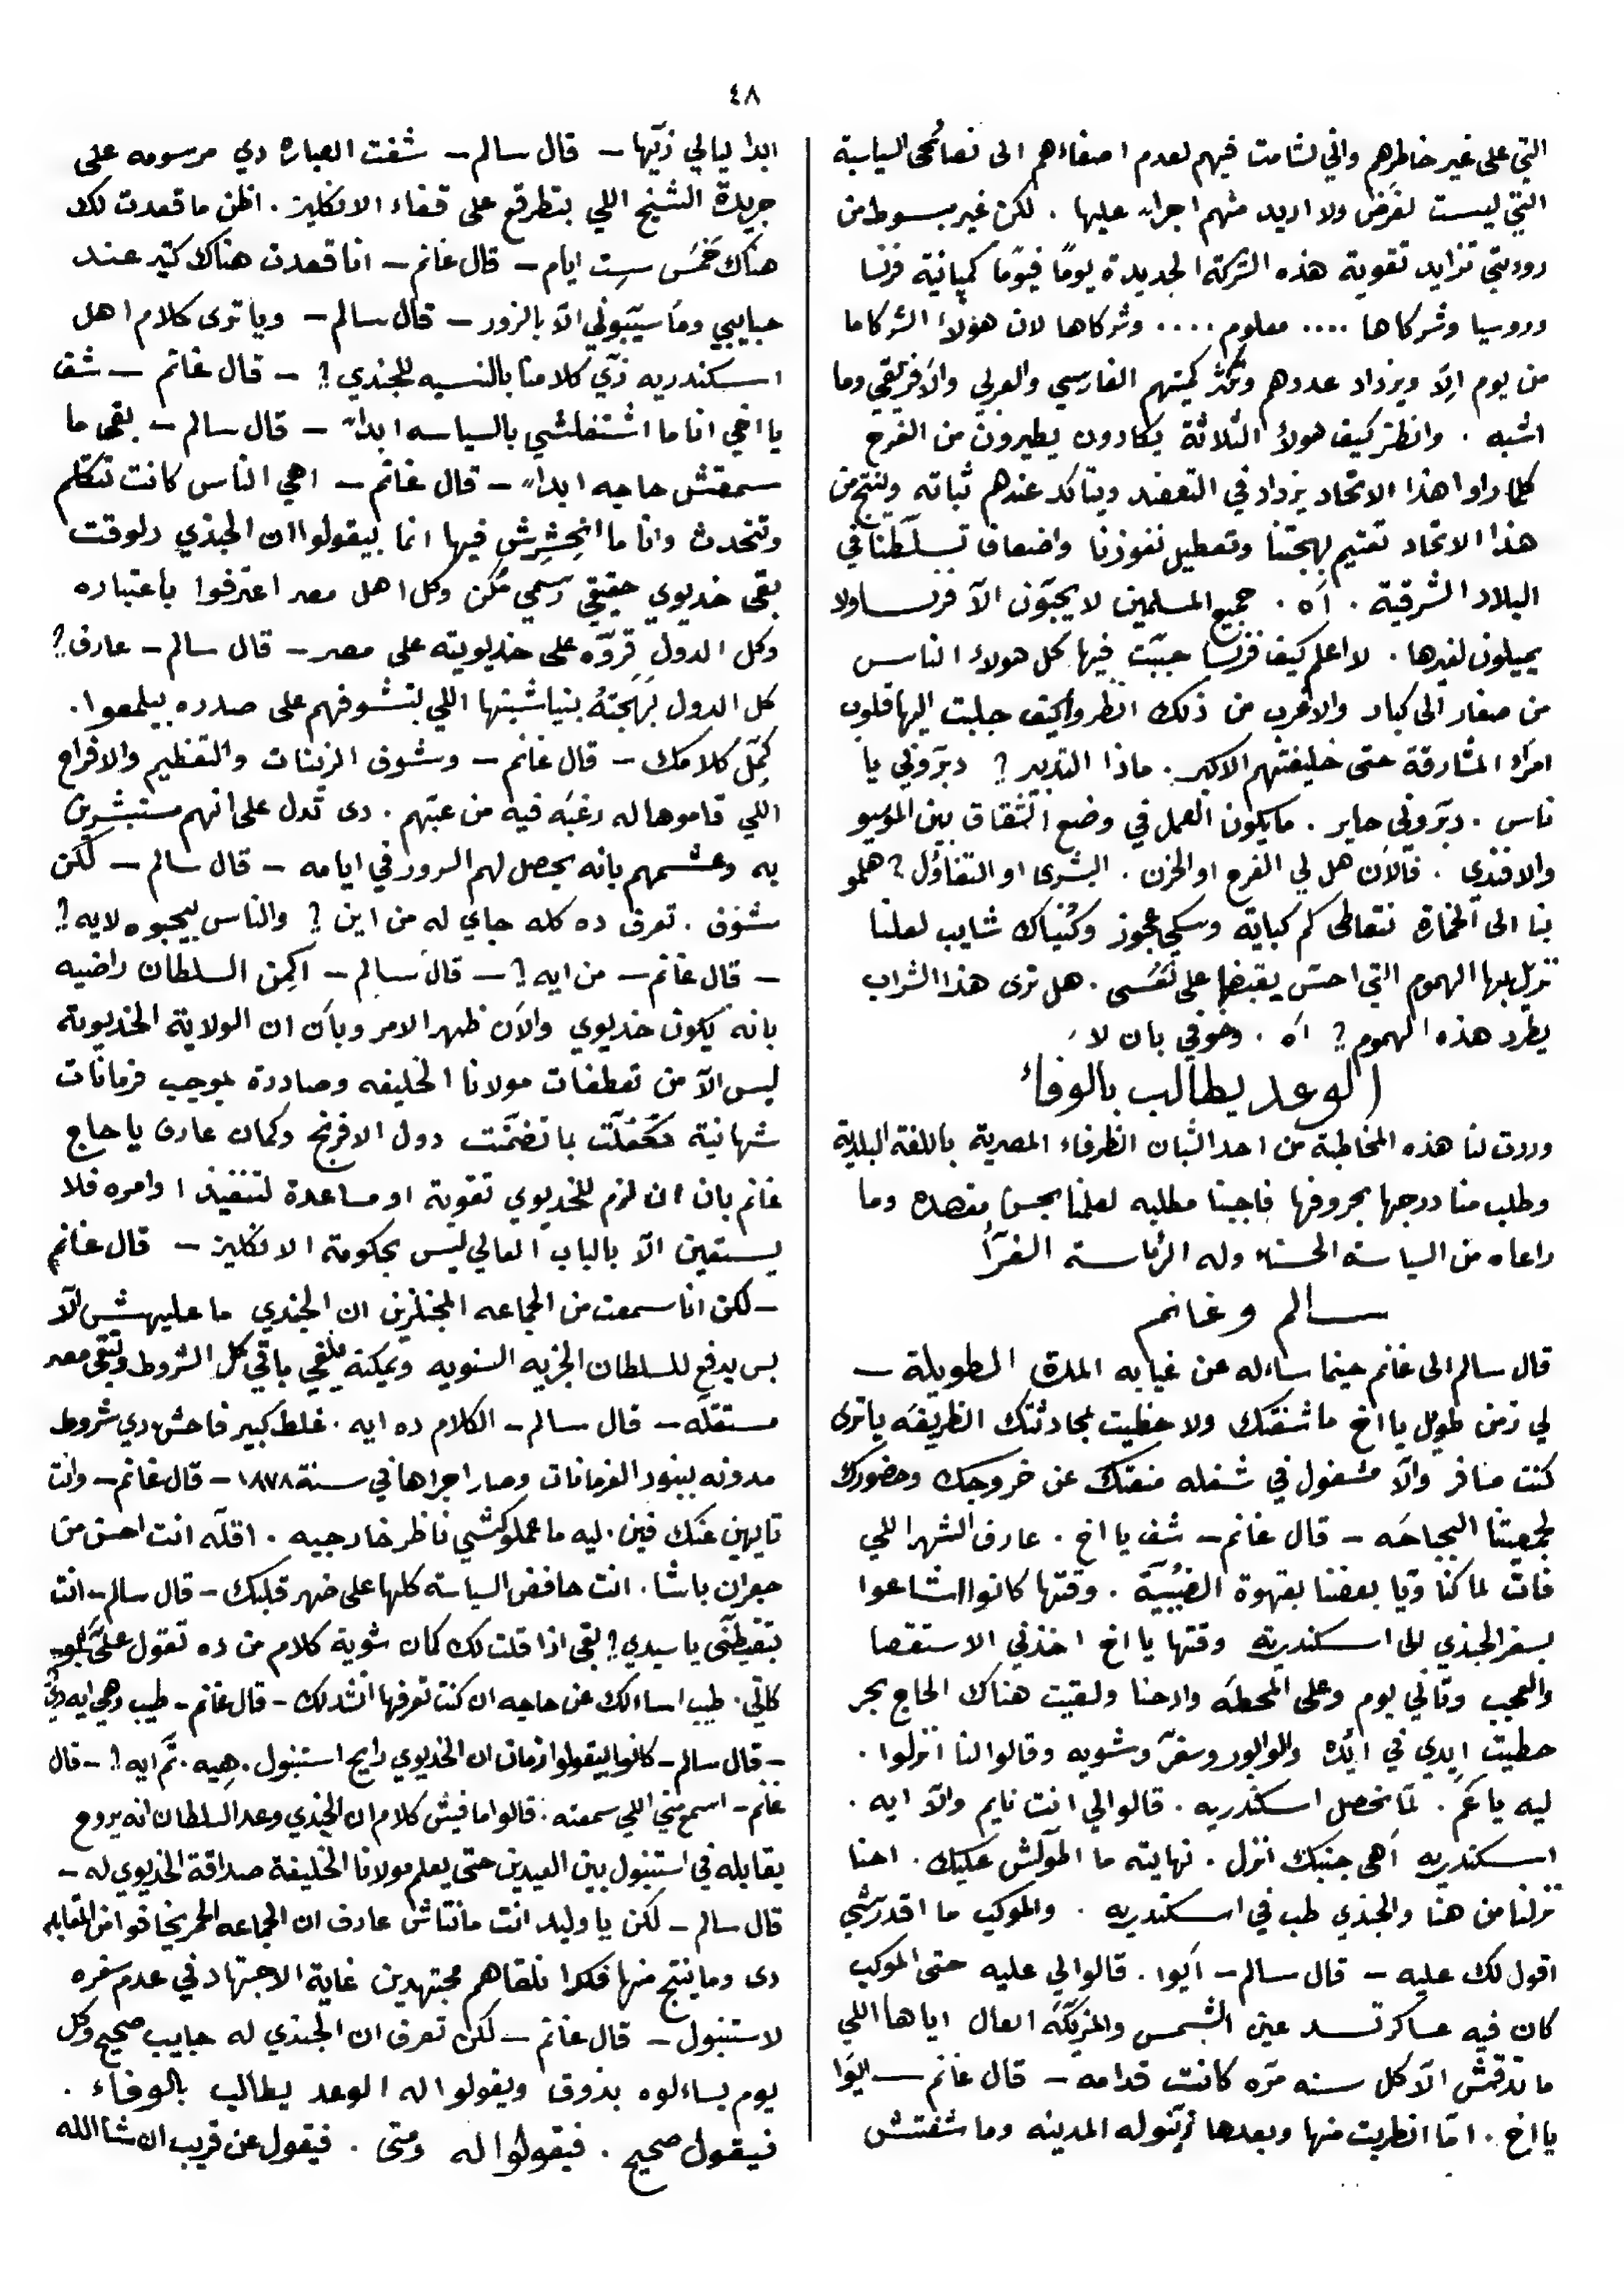 ٤٨
التي على غير خاطرهم واني لشامت فيهم لعدم اصغاءهم الى نصائحى السياسية
التي ليست لغرض ولا اريد منهم اجراء عليها . لكن غير مبسوط من
رودتي تزايد تقوية هذه الشركة الجديدة يومًا فيومًا كمپانية فرنسا
وروسيا وشركاها .... معلوم .... وشركاها لان هؤلاء الشركا ما
من يوم الاّ ويزداد عددهم وتكثر كميتهم الفارسي والعربي والافريقي وما
اشبه . وانظر كيف هولاء الثلاثة يكادون يطيرون من الفرح
كلما راوا هذا الاتحاد يزداد في التعضد ويتاكد عندهم ثباته وينتج من
هذا الاتحاد تعتيم بهجتنا وتعطيل نفوزنا واضعاف تسلّطنا في
البلاد الشرقية . آه . جميع المسلمين لا يحبّون الاّ فرنسا ولا
يميلون لغيرها . لا اعلم كيف فرنسا حبّبت فيها كل هولاء الناس
من صغار الى كبار والاغرب من ذلك انظروا كيف جلبت اليها قلوب
امراء المشارقة حتى خليفتهم الاكبر . ماذا التدبير ? دبّروني يا
ناس . دبّروني حاير . ما يكون العمل في وضع الشقاق بين الموسيو
والافندي . فالآن هل لي الفرح او الحزن . البشرى او التفاؤل ? هلمو
بنا الى الخمارة نتعاطى كم كباية وسكي عجوز وكنياك شايب لعلنا
نزيل بها الهموم التي احسّ بقبضها على نفسى . هل ترى هذا الشراب
يطرد هذه الهموم ? آه . وخوفي بان لا
الوعد يطالب بالوفاء
وردت لنا هذه المخاطبة من احد الشبان الظرفاء المصرية باللغة البلدية
وطلب منا درجها بحروفها فاجبنا مطلبه لعلمنا بحسن مقصده وما
راعاه من السياسة الحسناء وله الرئاسة الغرّا
سالم وغانم
قال سالم الى غانم حينما ساءله عن غيابه المدة الطويلة –
لي زمن طويل يا اخ ما شفتك ولا حظيت بمحادثتك الظريفه ياترى
كنت مسافر والاّ مشغول في شغله منعتك عن خروجك وحضورك
لجمعيتنا البجاحه – قال غانم – شف يا اخ . عارف الشهر اللي
فات لما كنّا ويّا بعضنا بقهوة الضبيبة . وقتها كانوا اشاعوا
بسفر الجندي الى اسكندريه وقتها يا اخ اخذني الاستقصا
والعجب وتاني يوم وعلى المحطه وادحنا ولقيت هناك الحاج بحر
حطيت ايدي في ايده والوابور وسفرّ وشويه وقالوا لنا انزلوا .
ليه يا عم . لمّا نحصل اسكندريه . قالوا لي انت نايم والاّ ايه .
اسكندريه اهى جنبك انزل . نهايته ما اطوّلش عليك . احنا
نزلنا من هنا والجندي طب في اسكندريه . والموكب ما اقدرشي
اقول لك عليه – قال سالم – أيوا . قالوا لي عليه حتى الموكب
كان فيه عساكر تسد عين الشمس والمزيكه العال اياها اللي
ما تدقش الاّ كل سنه مرّه كانت قدامه – قال غانم – ايوا
يا اخ . امّا انطربت منها وبعدها زيّنوله المدينه وما شفتش
ابدا ليالي زيّها – قال سالم – شفت العباره دي مرسومه على
جريدة الشيخ اللي بتطرقع على قفاء الانكليز . اظن ما قعدت لك
هناك خمس ست ايام – قال غانم – انا قعدت هناك كتير عند
حبايبي وما سيّبوني الاّ بالزور – قال سالم – وياترى كلام اهل
اسكندريه زيّ كلامنا بالنسبه للجندي ? – قال غانم – شف
يا اخي انا ما اشتغلشي بالسياسه ابداً – قال سالم – بقى ما
سمعتش حاجه ابداً – قال غانم – اهي الناس كانت تتكلم
وتتحدث وانا ما انحشرش فيها انما بيقولوا ان الجندي دلوقت
بقى خديوي حقيقي رسمي مُكن وكل اهل مصر اعترفوا باعتباره
وكل الدول قرّوه على خديويته على مصر – قال سالم – عارف ?
كل الدول بهجته بنياشينها اللي بتشوفهم على صدره بيلمعوا .
كمّل كلامك – قال غانم – وشوف الزينات والتعظيم والافراح
اللي قاموها له رغبه فيه من عبّهم . دى تدل على انهم مستبشرين
به وعشمهم بانه يحصل لهم السرور في ايامه – قال سالم – لكن
شوف . تعرف ده كله جاي له من اين ? والناس بيحبوه لايه ?
– قال غانم – من ايه ? – قال سالم – اكمن السلطان راضيه
بانه يكون خديوي والآن ظهر الامر وبان ان الولاية الخديوية
ليس الاّ من تعطفات مولانا الخليفه وصادرة بموجب فرمانات
شهانية تكفلت بما تضمّنت دول الافرنج وكمان عارف يا حاج
غانم بان ان لزم للخديوي تقوية او مساعدة لتنفيذ اوامره فلا
يستعين الاّ بالباب العالي ليس بحكومة الانكليز – قال غانم
– لكن انا سمعت من الجماعه المجنلزين ان الجندي ما عليهش الاّ
بس يدفع للسلطان الجزيه السنويه ويمكنه يلغي باقي كل الشروط وتبقى مصر
مستقلّه – قال سالم – الكلام ده ايه . غلط كبير فاحش دي شروط
مدونه ببنود الفرمانات وصار اجراها في سنة ١٨٧٨ – قال غانم – وانت
تايهين عنك فين . ليه ما عملوكشي ناظر خارجيه . اقلّه انت احسن من
جعران باشا . انت حافض السياسة كلها على ضهر قلبك – قال سالم – انت
تغيظنى يا سيدي ? بقى اذا قلت لك كمان شوية كلام من ده تقول عليّ
كاني . طيب اساءلك عن حاجه ان كنت تعرفها انشد لك – قال غانم – طيب وهي ايه دي
– قال سالم – كانوا بيقولوا زمان ان الخديوي رايح استنبول . هيه . تم ايه ? – قال
غانم – اسمع مني اللي سمعته . قالوا ما فيش كلام ان الجندي وعد السلطان انه يروح
يقابله في استنبول بين العيدين حتى يعلم مولانا الخليفة صداقة الخديوي له –
قال سالم – لكن يا وليد انت مانتاش عارف ان الجماعه الحمر يخافوا من المقابله
دى وما ينتج منها فلكدا نلقاهم مجتهدين غاية الاجتهاد في عدم سفره
لاستنبول – قال غانم – لكن تعرف ان الجندي له حبايب صحيح وكل
يوم يساءلوه بذوق ويقولوا له الوعد يطالب بالوفاء .
فيقول صحيح . فيقولوا له ومتى . فيقول عن قريب ان شا الله